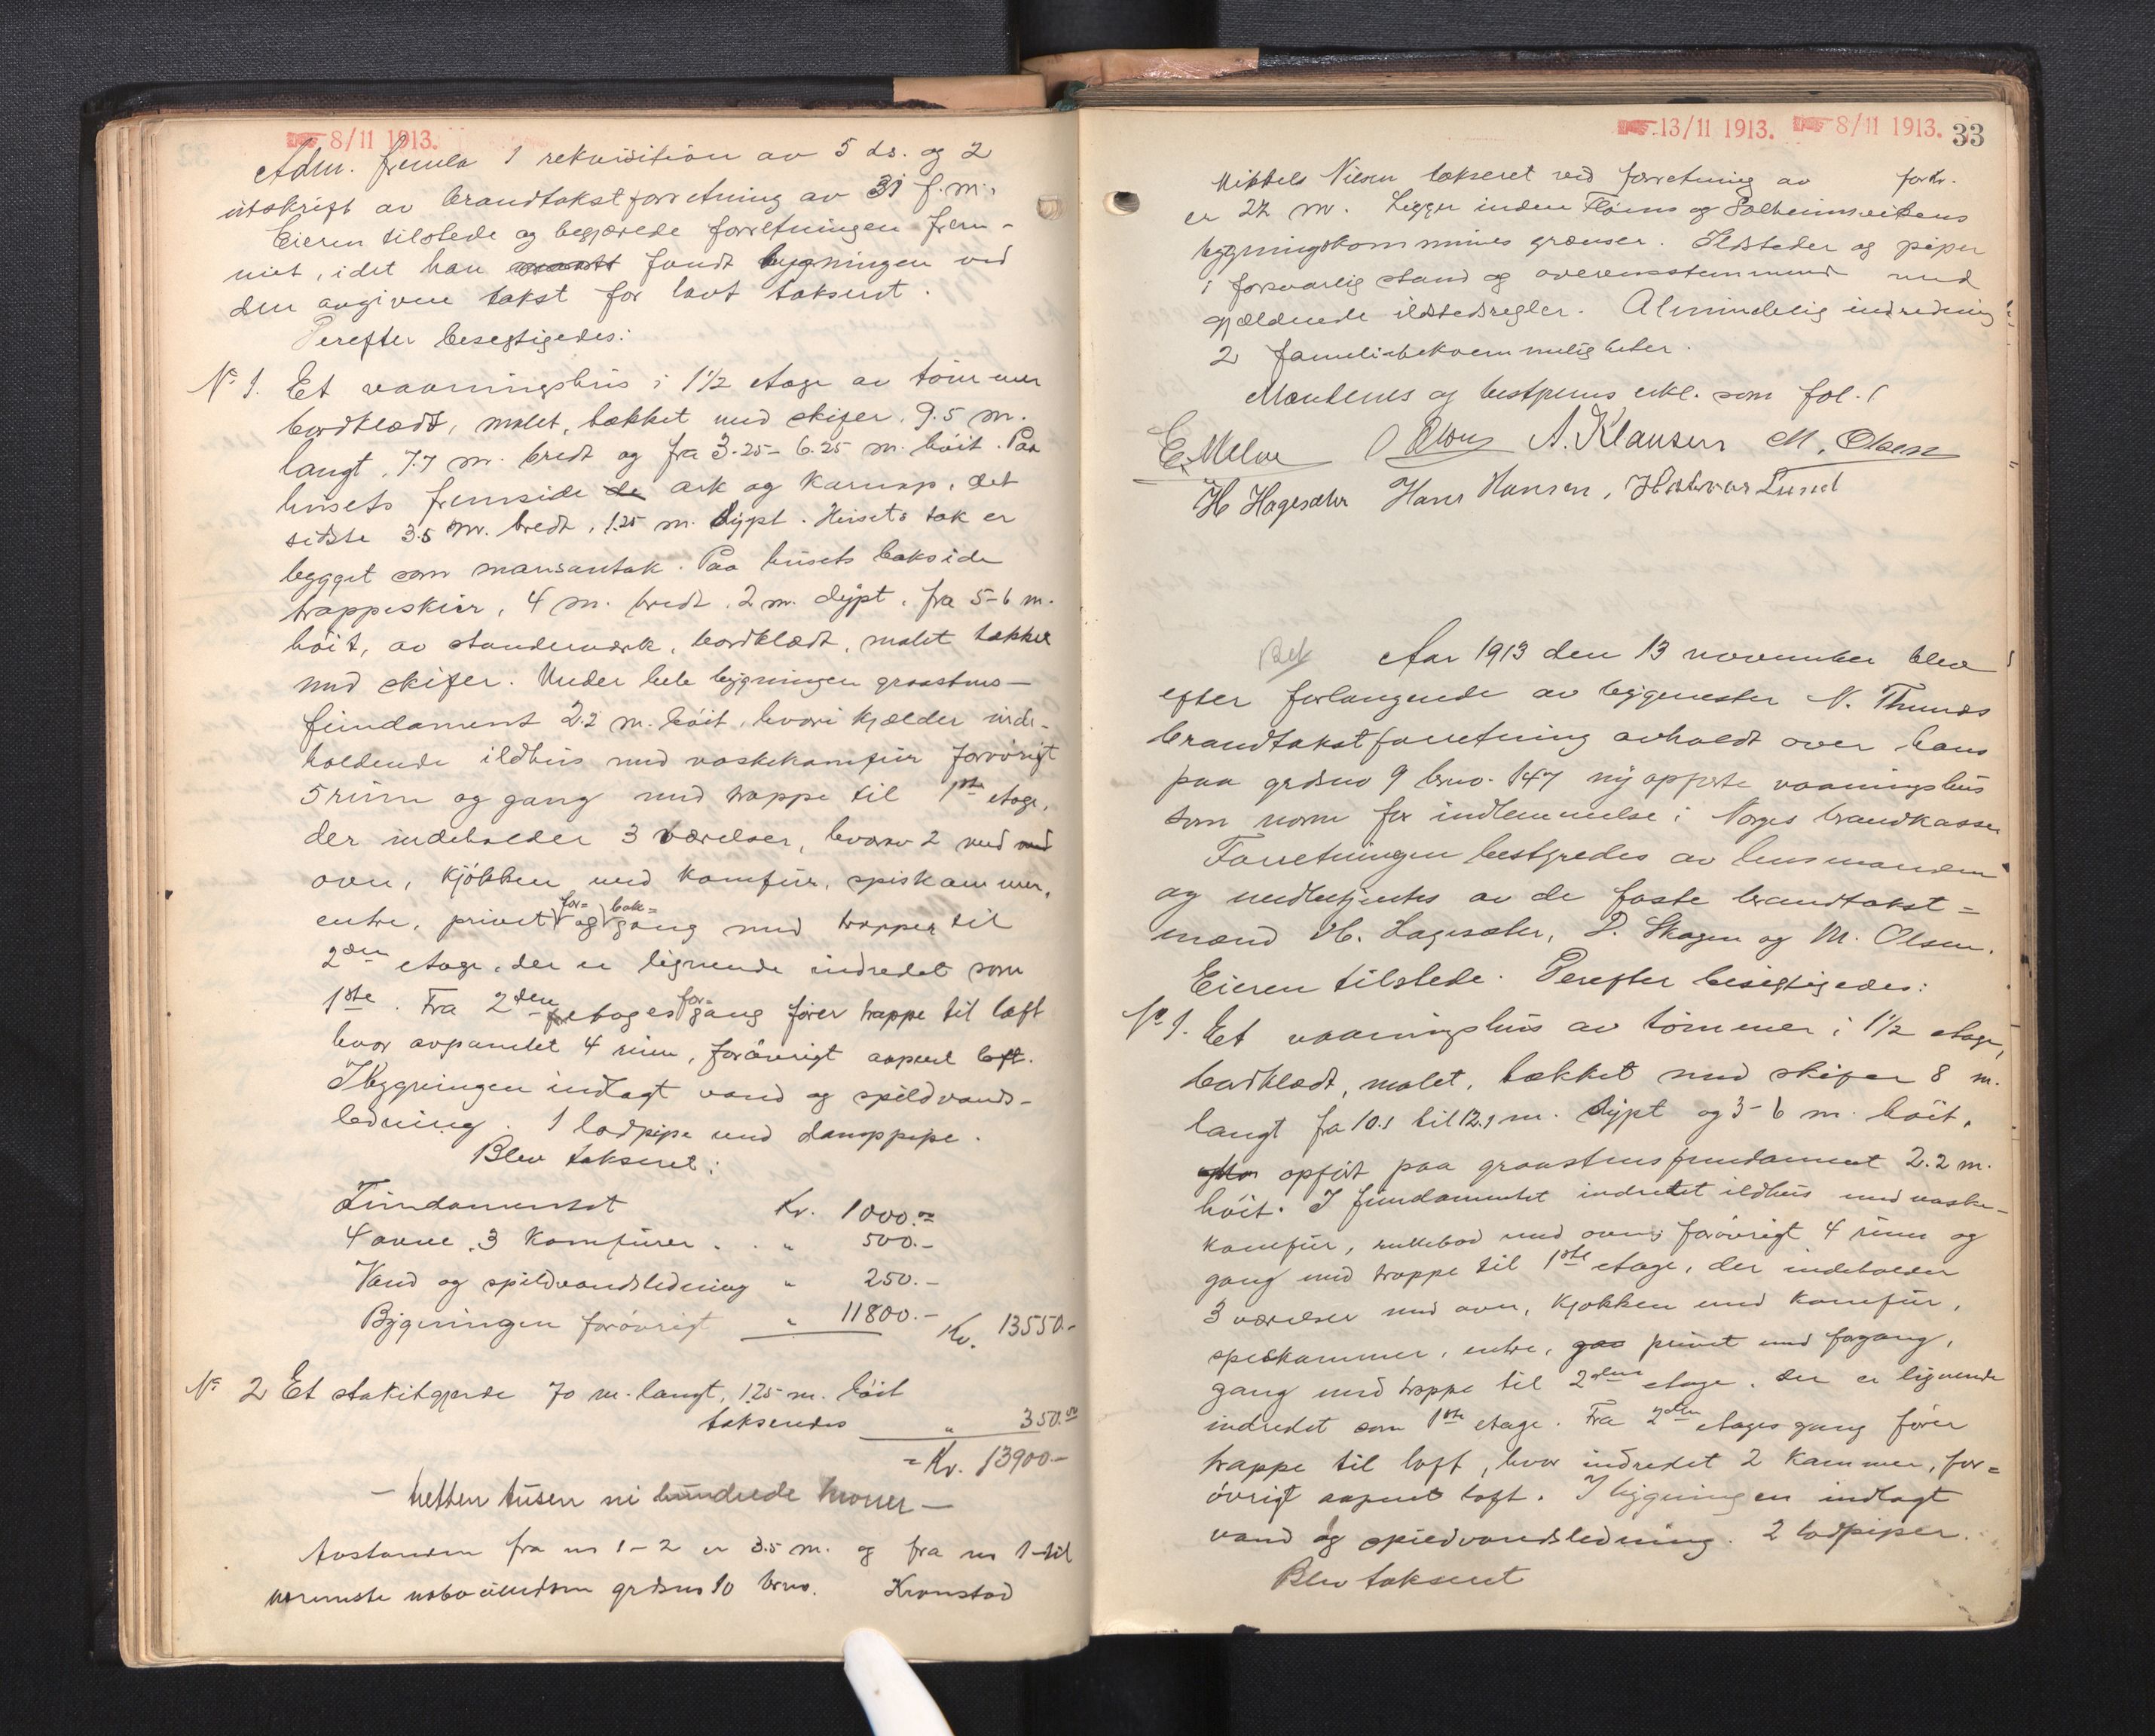 8/11 1913.
Adm. fremla 1 rekvisition av 5 ds. og 2
utskrift av brandtakstforretning av 31 f. m.
Eieren tilstede og begjærede forretningen frem-
met, idet han fandt bygningen ved
den avgivne takst for lavt taksert.
Derefter besegtigedes:
No 1. Et vaaningshus i 1½ etage av tømmer
bordklædt, malet, tækket med skifer, 9.5 m.
langt, 7.7 m. bredt og fra 3.25 - 6.25 m. høit. Paa
husets fremside de ark og karnap, det
sidste 3.5 m. bredt, 1.25 m. dypt. Husets tak er
bygget som mansantak. Paa husets bakside
trappeskur, 4 m. bredt, 2 m. dypt, fra 5-6 m.
høit, av standerværk, bordklædt, malet tækket
med skifer. Under hele bygningen graastens-
fundament 2.2 m. høit, hvori kjælder inde-
holdende ildhus med vaskekomfur forøvrigt
5 rum og gang med trappe til 1ste etage,
der indeholder 3 værelser, hvorav 2 med med
ovn, kjøkken med komfur, spiskammer,
for= bak=
entre, privet og gang med trapper til
2den etage, der er lignende indredet som
1ste. Fra 2den etages for= gang fører trappe til loft
hvor avpanelet 4 rum, forøvrigt aapent loft.
I bygningen indlagt vand og spildvands-
ledning. 1 lodpipe med dampppipe.
Blev taksert:
Fundamentet Kr. 1000.-
4 ovne, 3 komfurer . . " 500.-
Vand og spildvandsledning " 250.-
Bygningen forøvrigt " 11800.- Kr. 13550.-
No 2 Et stakitgjerde 70 m. langt, 1.25 m. høit
taksertes " 350.-
= Kr. 13900.-
- tretten tusen ni hundrede kroner -
Avstanden fra no 1-2 er 3.5 m. og fra no 1 til
nærmeste naboeiendom grdsno 10 brno. Kronstad
13/11 1913. 8/11 1913. 33
Mikkels Nilsen takseret ved forretning av forh.
er 22 m. Ligger inden Fløens og Solheimsvikens
bygningskommunes grænser. Ildsteder og piper
i forsvarlig stand og overensstemmende med
gjældende ildstedsregler. Almindelig indredning
2 familiebekvemmeligheter.
Mændenes og bestyrerens erkl. som fol. 1
E. Melve O Olsen A. Klausen M. Olsen
H Hagesæter Hans Hansen, Halvor Lund
Bet Aar 1913 den 13 november blev
efter forlangende av bygmester N. Thunes
brandtakstforretning avholdt over hans
paa grdsno 9 brno. 147 ny opførte vaaningshus
som norm for indlemmelse i Norges brandkasse
Forretningen bestyredes av lensmanden
og medbetjentes av de faste brandtakst=
mænd H. Hagesæter, P. Skagen og M. Olsen.
Eieren tilstede. Derefter besigtigedes:
No 1. Et vaaningshus av tømmer i 1½ etage,
bordklædt, malet, tækket med skifer 8 m.
langt fra 10.1 til 12.1 m. dypt og 3-6 m. høit,
opført paa graastensfundament 2.2 m.
høit. I fundamentet indredet ildhus med vaske-
komfur, rullebod med ovn, forøvrigt 4 rum og
gang med trappe til 1ste etage, der indeholder
3 værelser med ovn, kjøkken med komfur,
speskammer, entre, gan privet med forgang,
gang med trappe til 2den etage, der er lignende
indredet som 1ste etage. Fra 2den etages gang fører
trappe til loft, hvor indredet 2 kammer, for=
øvrigt aapent loft. I bygningen indlagt
vand og spildvandsledning. 2 lodpiper.
Blev taksert